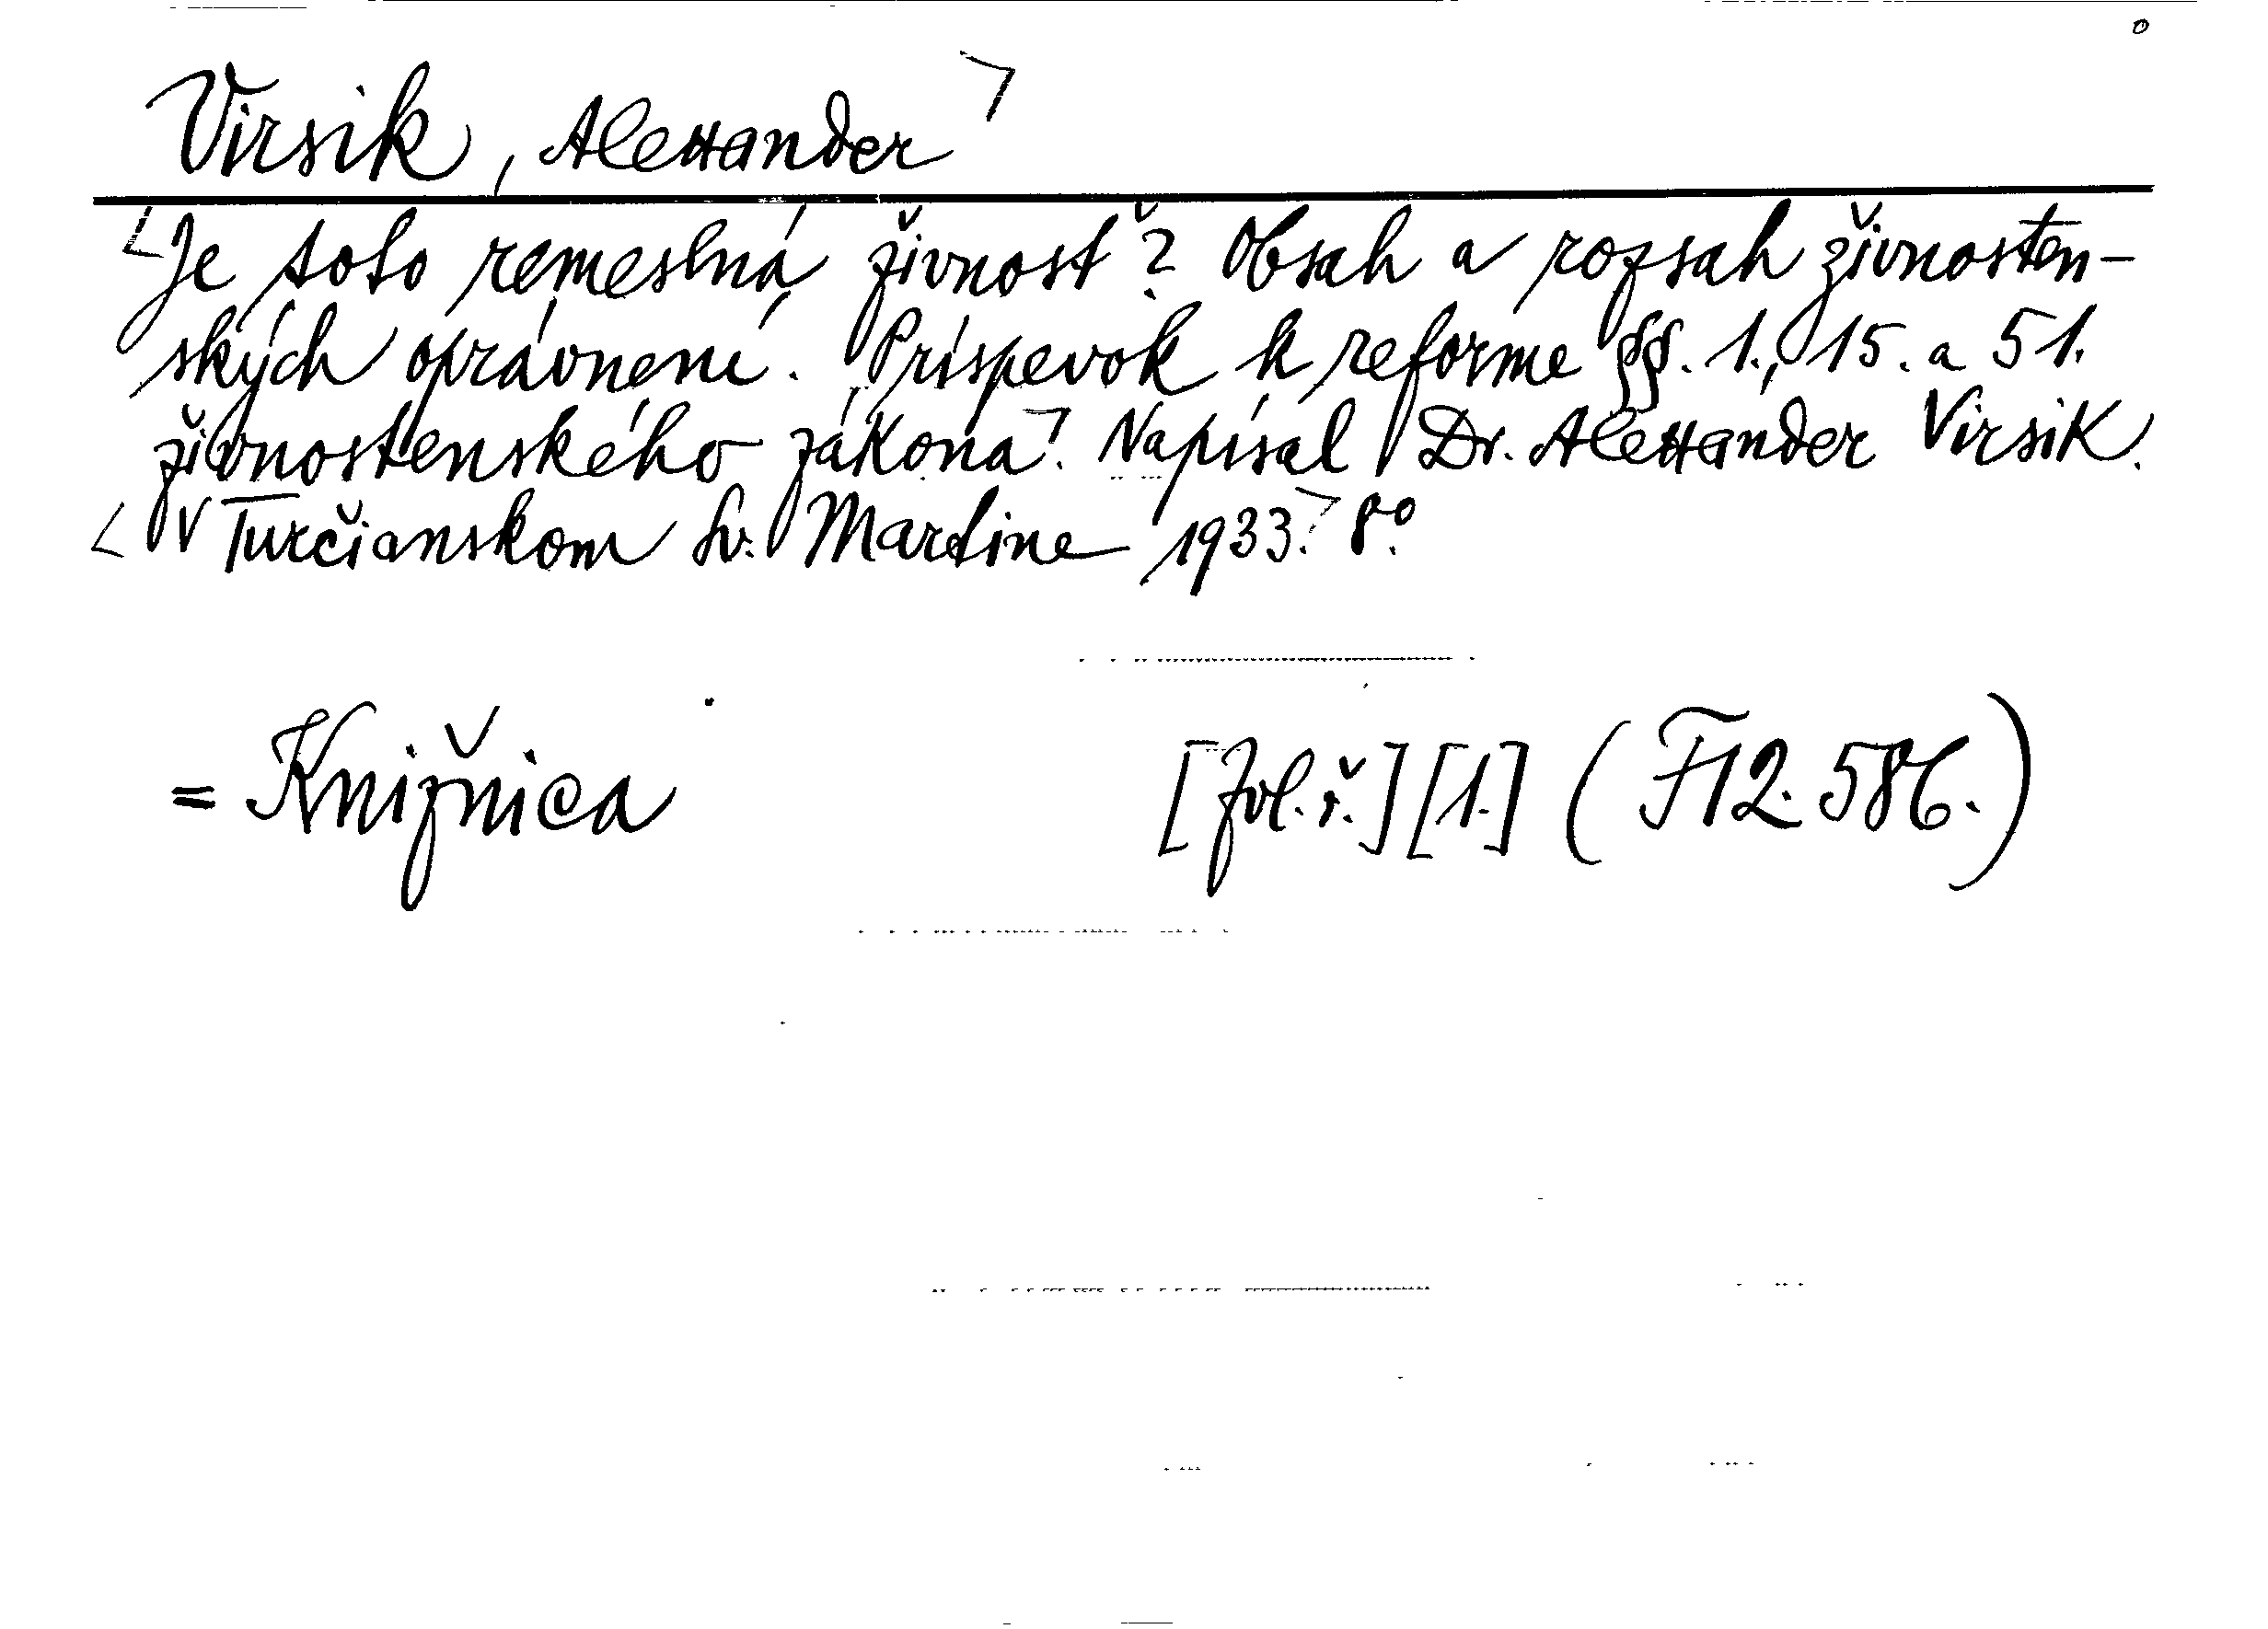 Virsik, Alexander
Je toto remeselná živnosť? Obsah a rozsah živnosten-
ských oprávnení. Príspevok k reforme §§. 1., 15. a 51.
živnostenského zákona. Napísal Dr. Alexander Virsik.
V Turčianskom Sv. Martine 1933. 8º.
= Knižnica [zvl. ř.] [1.] (F12.586.)